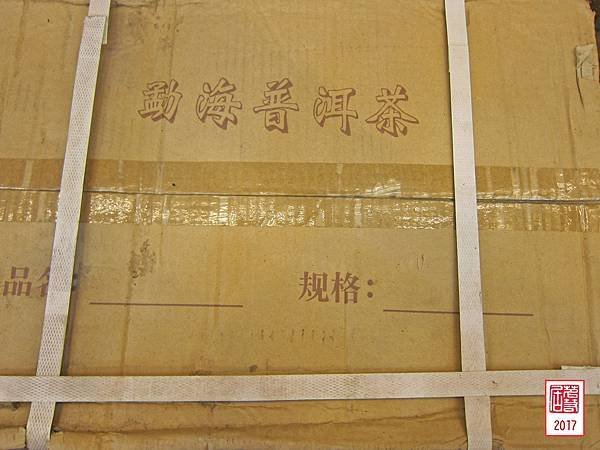 勐海普洱茶
品名:
规格:
2017